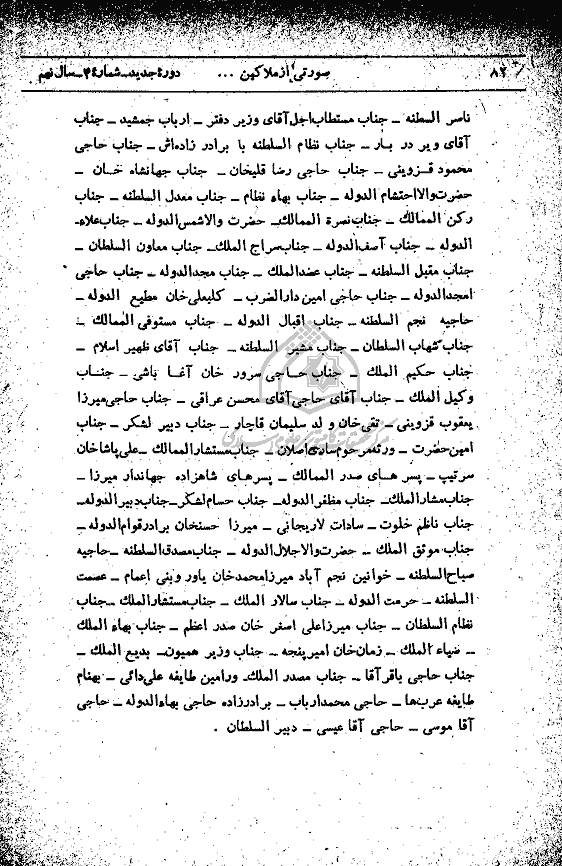 ۸۲ صورتی از ملاکین ... دورهٔ جدید ـ شمارهٔ ۴ ـ سال نهم
ناصر السطنه ـ جناب مستطاب اجل آقای وزیر دفتر ـ ارباب جمشید ـ جناب
آقای وزیر در بـار ـ جناب نظام السلطنه با برادر زاده‌اش ـ جناب حاجی
محمود قـزوینی ـ جناب حاجی رضا قلیخان ـ جناب جهانشاه خـان ـ
حضرت والا احتشام الدوله ـ جناب بهاء نظام ـ جناب معدل السلطنه ـ جناب
رکن الممالک ـ جناب نصرة الممالک ـ حضرت والا شمس الدوله ـ جناب علاء ـ
الدوله ـ جناب آصف الدوله ـ جناب سراج الملک ـ جناب معاون السلطان ـ
جناب مقبل السلطنه ـ جناب عضد الملک ـ جناب مجد الدوله ـ جناب حاجی
امجد الدوله ـ جناب حاجی امین دار الضرب ـ کلبعلی خان مطیع الدوله ـ
حاجیه نجم السلطنه ـ جناب اقبال الدوله ـ جناب مستوفی الممالک ـ
جناب شهاب السلطان ـ جناب مشیر السلطنه ـ جناب آقای ظهیر اسلام ـ
جناب حکیم الملک ـ جناب حـاجی سرور خان آغـا باشی ـ جنـاب
وکیل الملک ـ جناب آقای حاجی آقای محسن عراقی ـ جناب حاجی میرزا
یعقوب قزوینی ـ تقی خان ولد سلیمان قاجار ـ جناب دبیر لشکر ـ جناب
امین حضرت ـ ورثه مرحوم ساری اصلان ـ جناب مستشار الممالک ـ علی پاشا خان
سرتیپ ـ پسر هـای صدر الممالک ـ پسرهای شاهزاده جهاندار میرزا ـ
جناب مشار الملک ـ جناب مظفر الدوله ـ جناب حسام لشکر ـ جناب دبیر الدوله ـ
جناب ناظم خلوت ـ سادات لاریجانی ـ میرزا حسنخان برادر قوام الدوله ـ
جناب موثق الملک ـ حضرت والا جلال الدوله ـ جناب مصدق السلطنه ـ حاجیه
صباح السلطنه ـ خوانین نجم آباد میرزا محمد خان یاور وبنی اعمام ـ عصمت
السلطنه ـ حرمت الدوله ـ جناب سالار الملک ـ جناب مستشار الملک ـ جناب
نظام السلطان ـ جناب میرزا علی اصغر خان صدر اعظم ـ جناب بهاء الملک
ـ ضیاء الملک ـ زمان خان امیر پنجه ـ جناب وزیر همیون ـ بدیع الملک ـ
جناب حاجی باقر آقا ـ جناب مصدر الملک ـ ورامین طایفه علی دائی ـ بهنام
طایفه عرب‌ها ـ حاجی محمد ارباب ـ برادرزاده حاجی بهاء الدوله ـ حاجی
آقا موسی ـ حاجی آقا عیسی ـ دبیر السلطان .